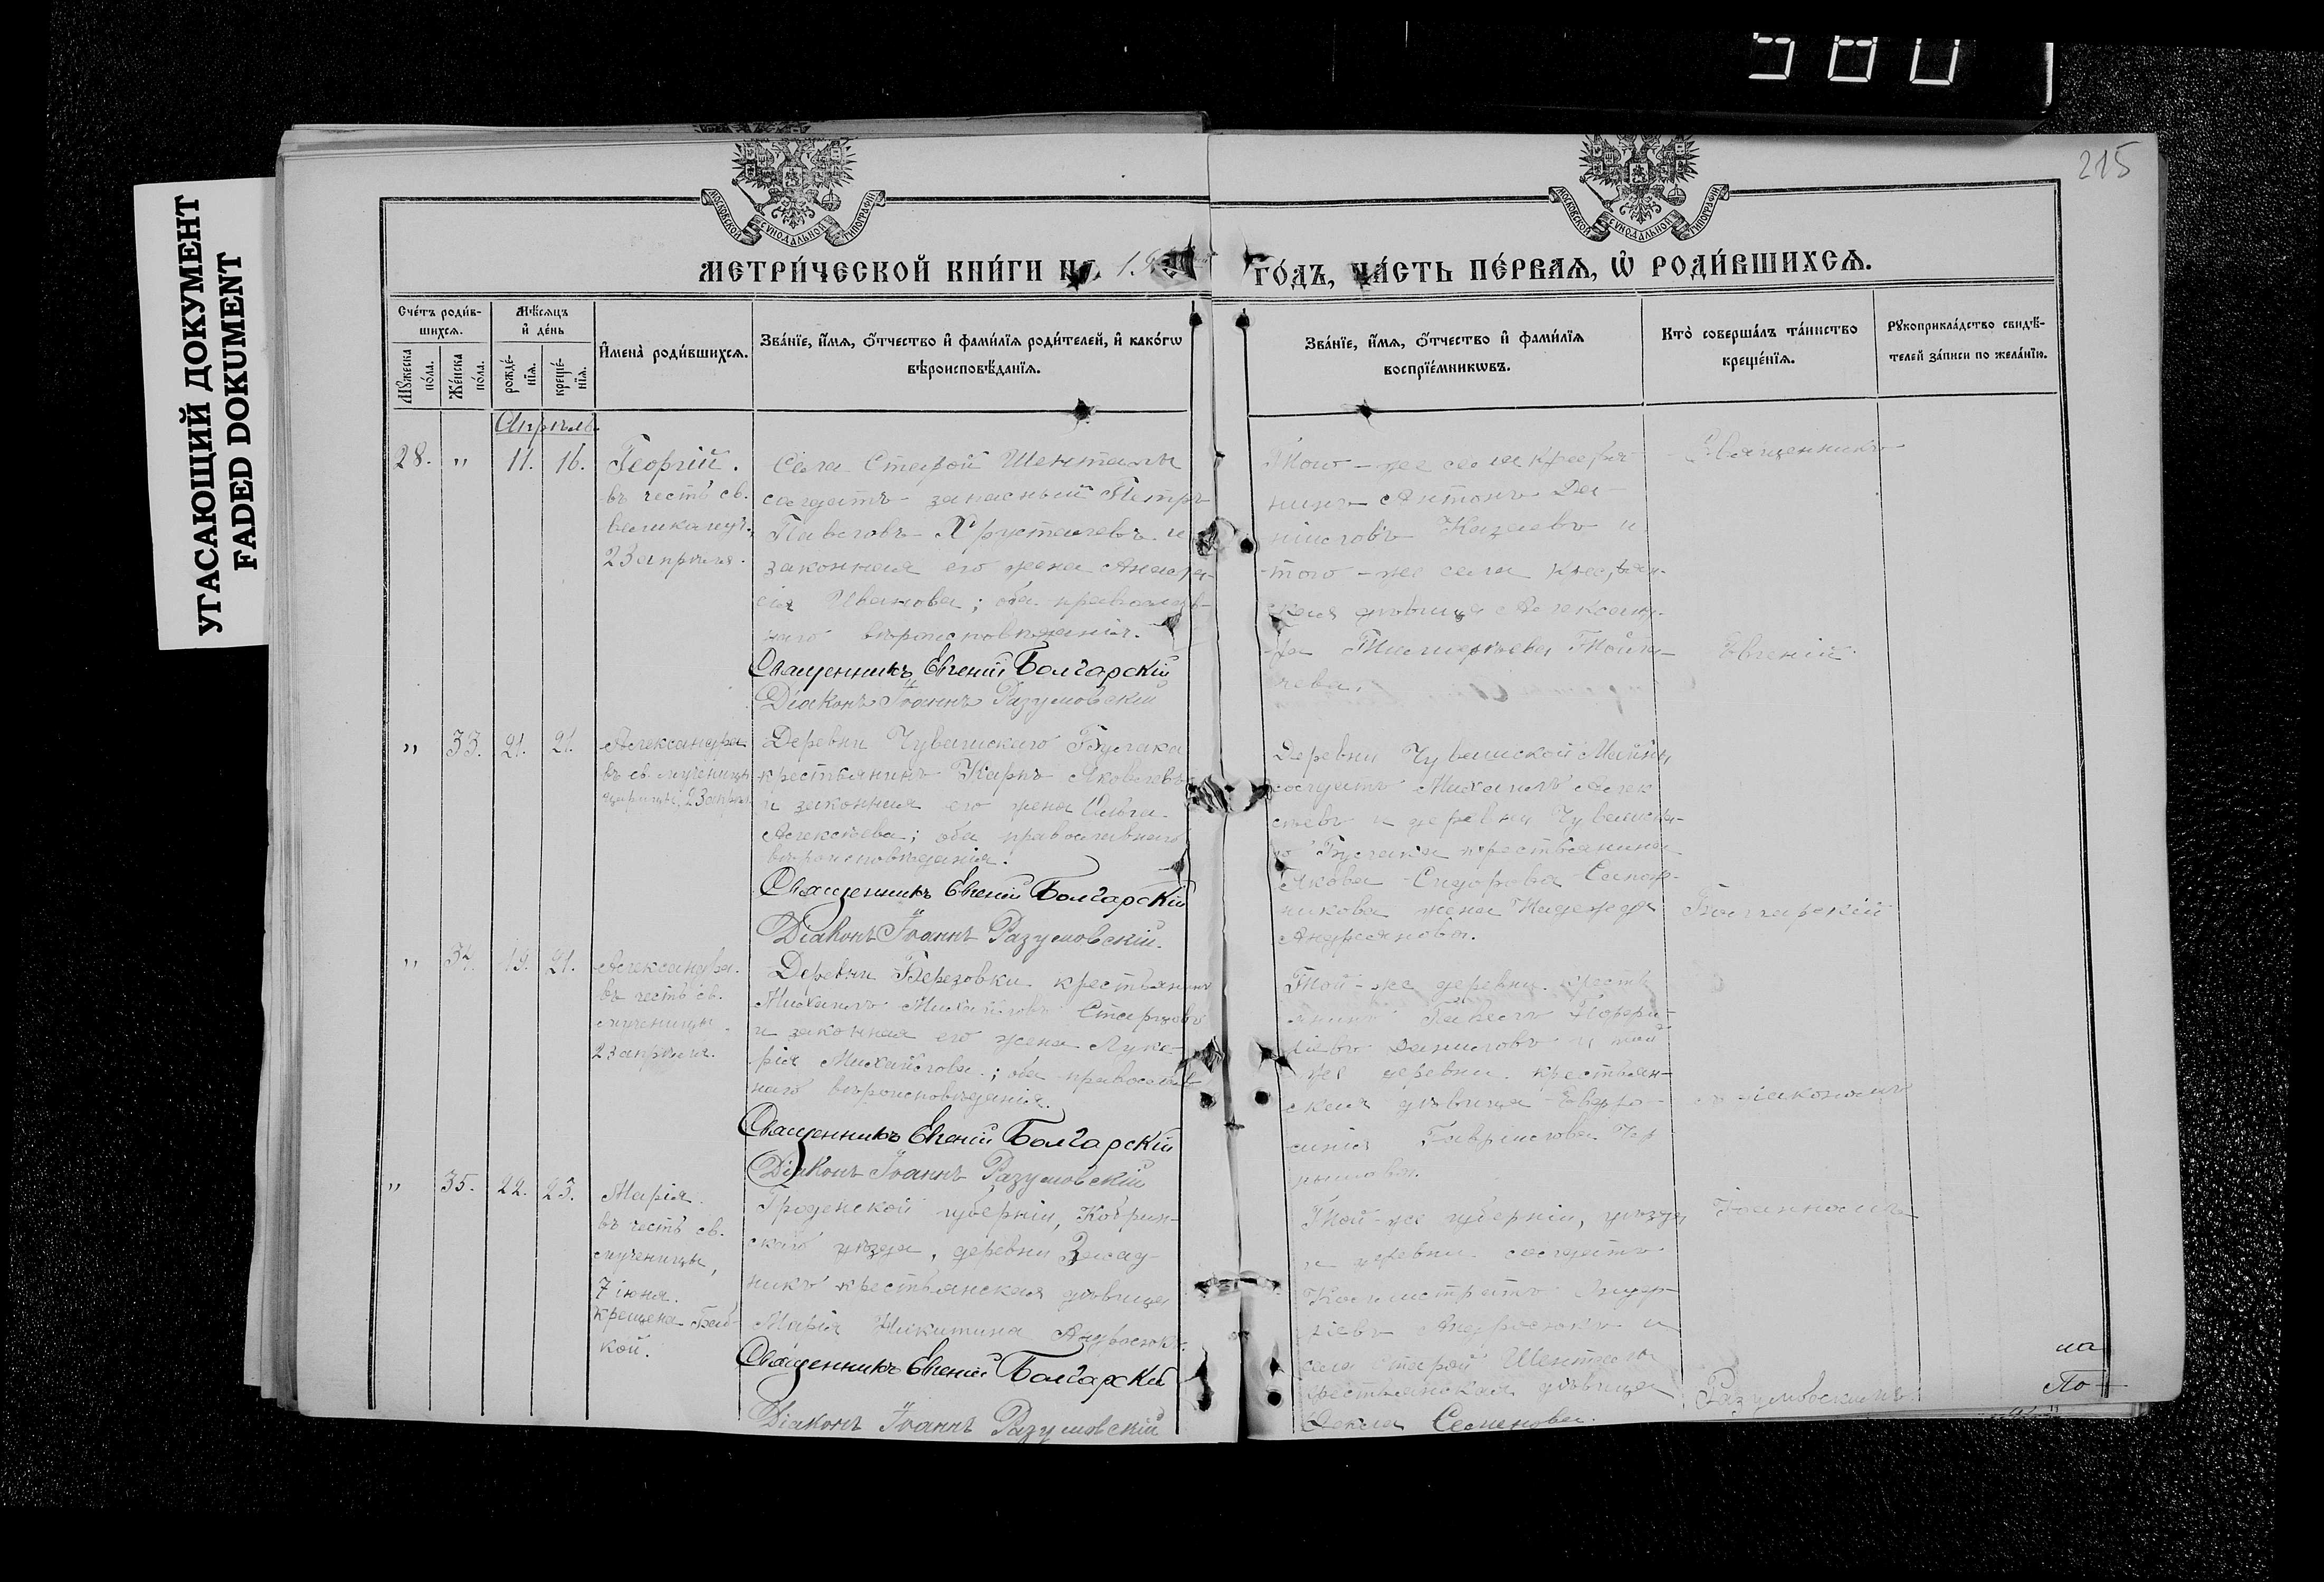 580
215
УГАСАЮЩИЙ ДОКУМЕНТ
FADED DOKUMENT
МОСКОВСКОЙ СѴНОДАЛЬНОЙ ТИПОГРАФІИ
МОСКОВСКОЙ СѴНОДАЛЬНОЙ ТИПОГРАФІИ
МЕТРИ́ЧЕСКОЙ КНИ́ГИ НА 19
ГО́ДЪ, ЧА́СТЬ ПЕ́РВАѦ, Ѽ РОДИ́ВШИХСѦ.
Сче́тъ роди́в-
шихсѧ.
Мꙋ́жеска по́ла.
Же́нска по́ла.
Мѣ́сѧцъ и҆ де́нь
рожде́-нїѧ.
креще́-нїѧ.
И҆мена̀ роди́вшихсѧ.
Зва́нїе, и҆́мѧ, ѻ҆́тчество и҆ фами́лїѧ роди́телей, и҆ како́гѡ
вѣ́роисповѣ́данїѧ.
Зва́нїе, и҆́мѧ, ѻ҆́тчество и҆ фами́лїѧ
воспрїе́мникѡвъ.
Кто̀ соверша́лъ та́инство
креще́нїѧ.
Рꙋкоприкла́дство свидѣ́-
телей за́писи по жела́нїю.
Апрѣль.
28. " 11. 16.
Георгій.
въ честь св.
великомуч.
23 апрѣля.
Села Старой Шенталы
солдатъ запасный Петръ
Павловъ Хрусталевъ и
законная его жена Анаста-
сія Иванова; оба православ-
наго вѣроисповѣданія.
Священникъ Евгеній Болгарскій
Діаконъ Іоаннъ Разумовскій
Того-же села крестья-
нинъ Антонъ Да-
ниловъ Казаевъ и
того-же села крестьян-
ская дѣвица Александ-
ра Тимофѣева
чева.
Священникъ
Евгеній
" 33. 21. 21.
Александра
въ св. мученицы
царицы, 23 апрѣля
Деревни Чувашскаго Буслака
крестьянинъ Карпъ Яковлевъ
и законная его жена Ольга
Алексѣева; оба православнаго
вѣроисповѣданія.
Священникъ Евгеній Болгарскій
Діаконъ Іоаннъ Разумовскій.
Деревни Чувашской Майны
солдатъ Михаилъ Алек
сѣевъ и деревни Чувашска-
го Буслака крестьянина
Якова Сидорова Сапож-
никова жена Надежда
Андреянова.
Болгарскій
" 34. 19. 21.
Александра.
въ честь св.
мученицы.
23 апрѣля.
Деревни Березовки крестьянинъ
Михаилъ Михайловъ Старковъ
и законная его жена Луке-
рія Михайлова; оба православ-
наго вѣроисповѣданія.
Священникъ Евгеній Болгарскій
Діаконъ Іоаннъ Разумовскій
Той-же деревни кресть
янинъ Павелъ Порфи-
ріевъ Даниловъ и той
же деревни крестьян-
ская дѣвица Евдо-
Гавріилова
съ діакономъ
" 35. 22. 23.
Марія.
въ честь св.
мученицы,
7 іюня.
крещена баб-
кой.
Гроденской губерніи, Кобрин-
скаго уѣзда, деревни Засад-
никъ крестьянская дѣвица
Марія Никитина
Священникъ Евгеній Болгарскій
Діаконъ Іоаннъ Разумовскій
Той-же губерніи, уѣзда
и деревни солдатъ
Калистратъ
Андросюкъ и
села Старой Шенталы
крестьянская дѣвица
Ѳекла Семенова.
Іоанномъ
Разумовскимъ.
на
По-